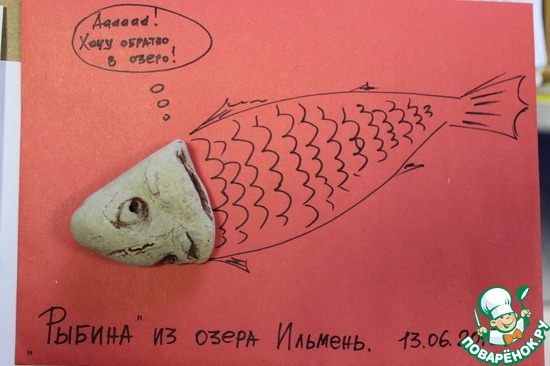 Аааааа!
Хочу обратно
в озеро!
„Рыбина" из озера Ильмень. 13.06.20
ПОВАРЁНОК.РУ